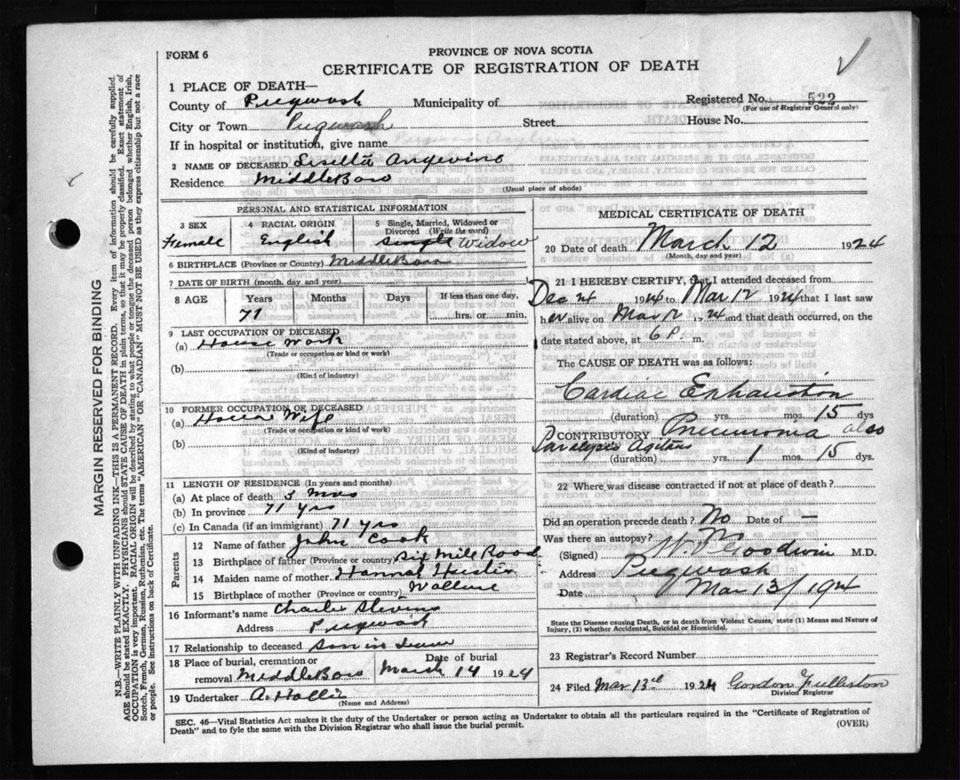 FORM 6
PROVINCE OF NOVA SCOTIA
CERTIFICATE OF REGISTRATION OF DEATH
1 PLACE OF DEATH—
County of Pugwash Municipality of Registered No. 522
(For use of Registrar General only)
City or Town Pugwash Street House No.
If in hospital or institution, give name
2 NAME OF DECEASED Angevine
Residence MiddleBoro
(Usual place of abode)
PERSONAL AND STATISTICAL INFORMATION
3 SEX 4 RACIAL ORIGIN 5 Single, Married, Widowed or Divorced (Write the word)
Female English Single Widow
6 BIRTHPLACE (Province or Country) MiddleBoro
7 DATE OF BIRTH (month, day and year)
8 AGE Years Months Days If less than one day,
71 hrs. or min.
9 LAST OCCUPATION OF DECEASED
(a) House Work
(Trade or occupation or kind or work)
(b)
(Kind of industry)
10 FORMER OCCUPATION OF DECEASED
(a) House Wife
(Trade or occupation or kind of work)
(b)
(Kind of industry)
11 LENGTH OF RESIDENCE (In years and months)
(a) At place of death 3 Mos
(b) In province 71 yrs
(c) In Canada (if an immigrant) 71 yrs
Parents
12 Name of father John Cook
13 Birthplace of father (Province or country) Six Mile Road
14 Maiden name of mother Hannah
15 Birthplace of mother (Province or country) Wallace
16 Informant's name Charlie Stevens
Address Pugwash
17 Relationship to deceased Son in Law
18 Place of burial, cremation or removal MiddleBoro Date of burial March 14 1924
19 Undertaker A. Hollis
(Name and Address)
MEDICAL CERTIFICATE OF DEATH
20 Date of death March 12 1924
(Month, day and year)
21 I HEREBY CERTIFY, that I attended deceased from
Dec 24 1924 to Mar 12 1924 that I last saw
her alive on Mar 12, 24 and that death occurred, on the
date stated above, at 6 P. m.
The CAUSE OF DEATH was as follows:
Cardiac Exhaustion
(duration) yrs. mos. 15 dys
CONTRIBUTORY Pneumonia also
Paralysis Agitans
(duration) yrs. 1 mos. 15 dys.
22 Where was disease contracted if not at place of death?
Did an operation precede death? No Date of —
Was there an autopsy? No
(Signed) Goodwin M.D.
Address Pugwash
Date Mar 13/1924
State the Disease causing Death, or in death from Violent Causes, state (1) Means and Nature of
Injury, (2) whether Accidental, Suicidal or Homicidal.
23 Registrar's Record Number
24 Filed Mar 13rd 1924 Gordon Fullerton
Division Registrar
SEC. 46—Vital Statistics Act makes it the duty of the Undertaker or person acting as Undertaker to obtain all the particulars required in the "Certificate of Registration of
Death" and to fyle the same with the Division Registrar who shall issue the burial permit. (OVER)
MARGIN RESERVED FOR BINDING
N.B.—WRITE PLAINLY WITH UNFADING INK—THIS IS A PERMANENT RECORD. Every item of information should be carefully supplied.
AGE should be stated EXACTLY. PHYSICIANS should STATE CAUSE OF DEATH in plain terms, so that it may be properly classified. Exact statement of
OCCUPATION is very important. RACIAL ORIGIN will be described by stating to what people or tongue the deceased person belonged whether English, Irish,
Scotch, French, German, Russian, Ruthenian, etc. The terms "AMERICAN" OR "CANADIAN" MUST NOT BE USED as they express citizenship but not a race
or people. See instructions on back of Certificate.